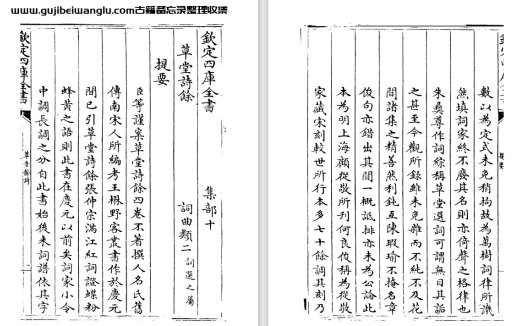 www.gujibeiwanglu.com古籍备忘录整理收集
欽定四庫全書
欽定四庫全書　集部十
草堂詩餘　詞曲類二　詞選之屬
提要
臣等謹案草堂詩餘四卷不著撰人名氏舊
傳南宋人所編考王楙野客叢書作於慶元
間已引草堂詩餘張仲宗滿江紅詞證蝶粉
蜂黃之語則此書在慶元以前矣詞家小令
中調長調之分自此書始後來詞譜依其字
草堂詩餘
數以為定式未免稍拘故為萬樹詞律所譏
然填詞家終不廢其名則亦倚聲之格律也
朱彝尊作詞綜稱草堂選詞可謂無目其詬
之甚至今觀所錄雖未免雜而不純不及花
間諸集之精善然利鈍互陳瑕瑜不掩名章
俊句亦錯出其間一概詆排亦未為公論此
本為明上海顧從敬所刊何良俊稱為從敬
家藏宋刻較世所行本多七十餘調其刻乃
提要